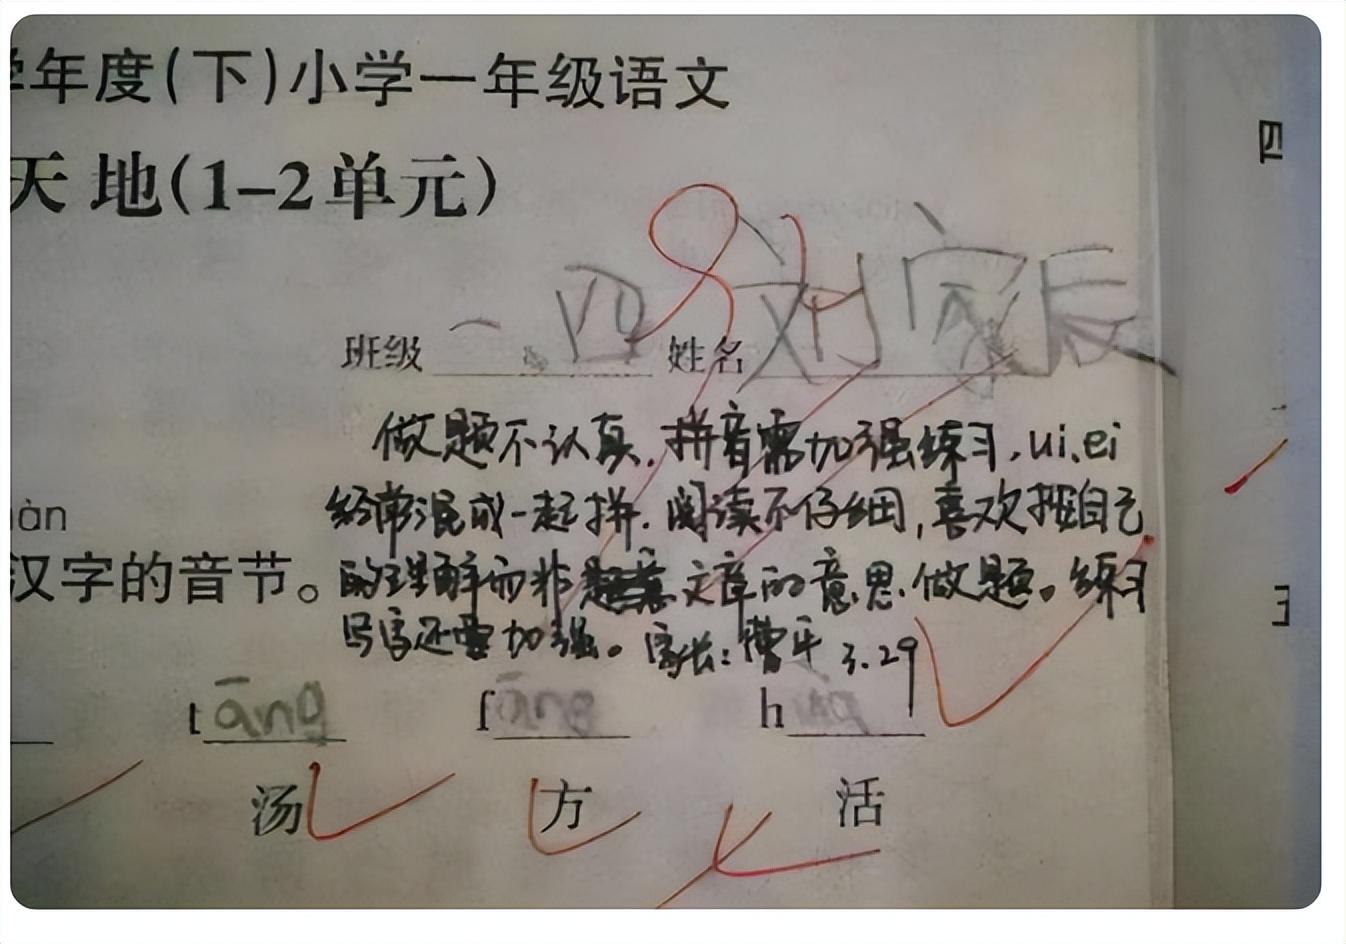 学年度(下)小学一年级语文
天地(1-2单元)
四
班级 一.四 姓名 刘家辰
做题不认真.拼音需加强练习,ui、ei
经常混成一起拼.阅读不仔细,喜欢按自己
àn
汉字的音节。
的理解而非文章的意思.做题。练习
写字还要加强。家长:曹平 3.29
tāng fāng h
汤 方 活